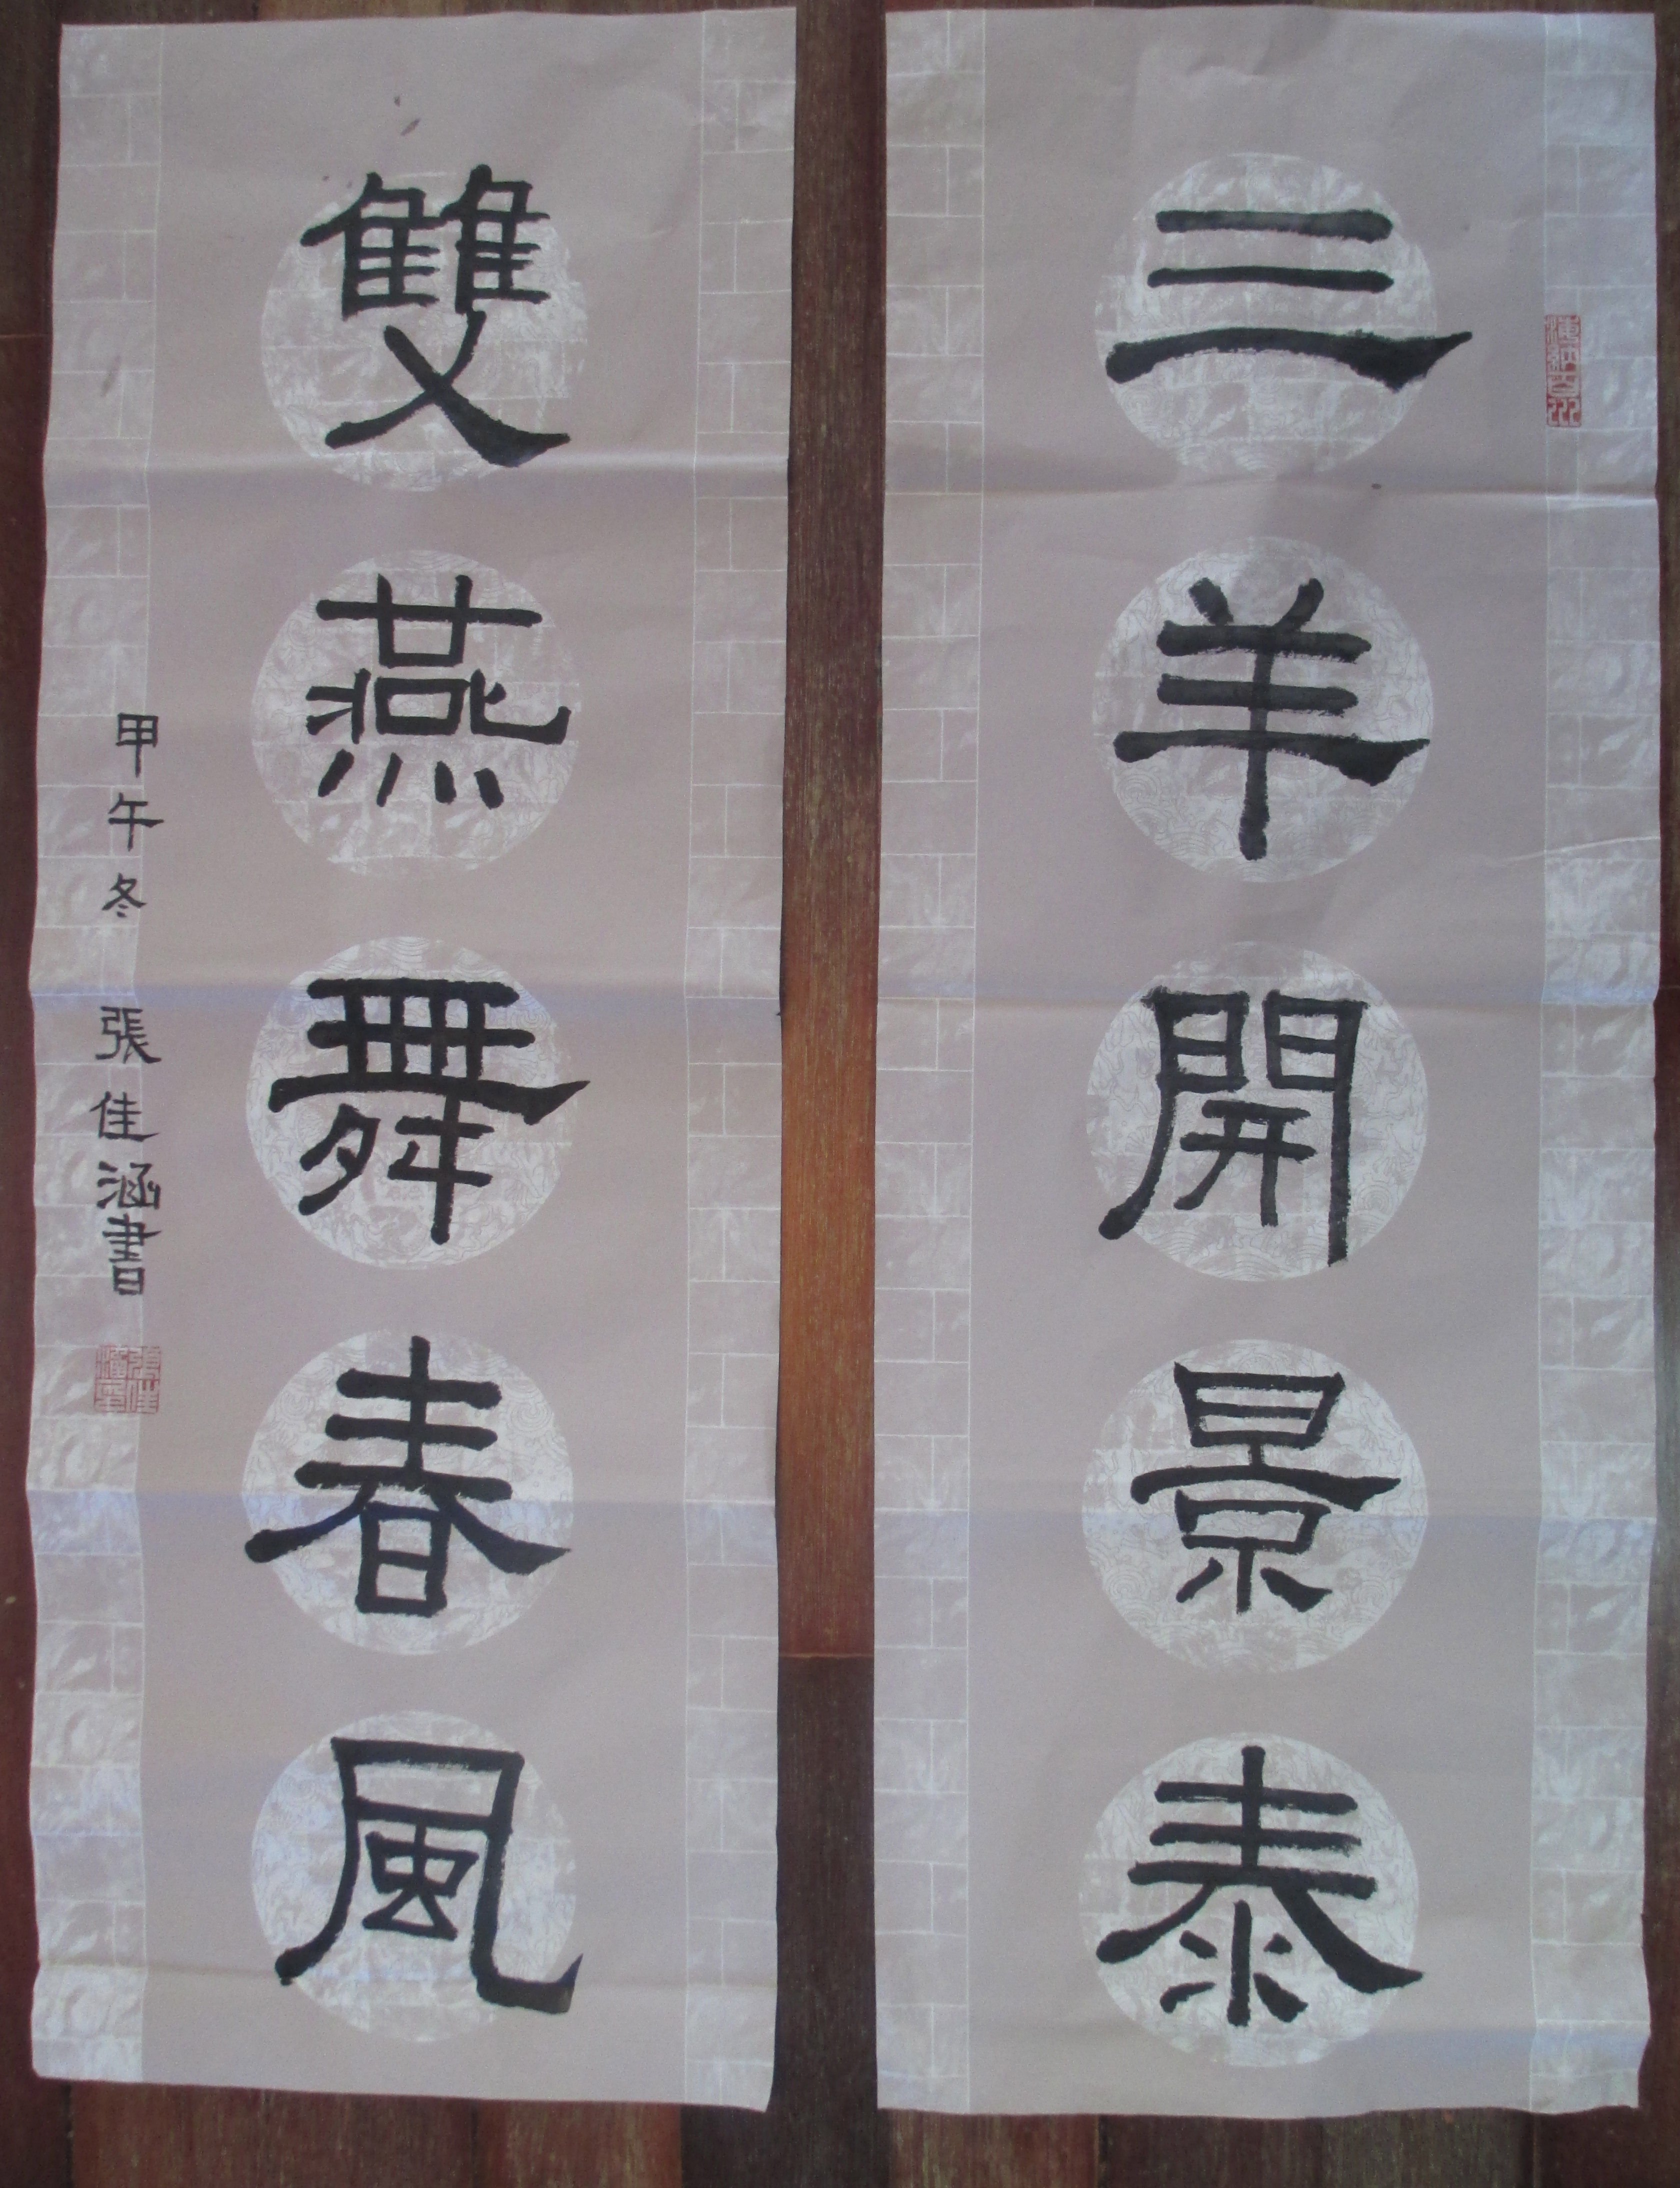 三羊開景泰
雙燕舞春風
甲午冬 張佳涵書